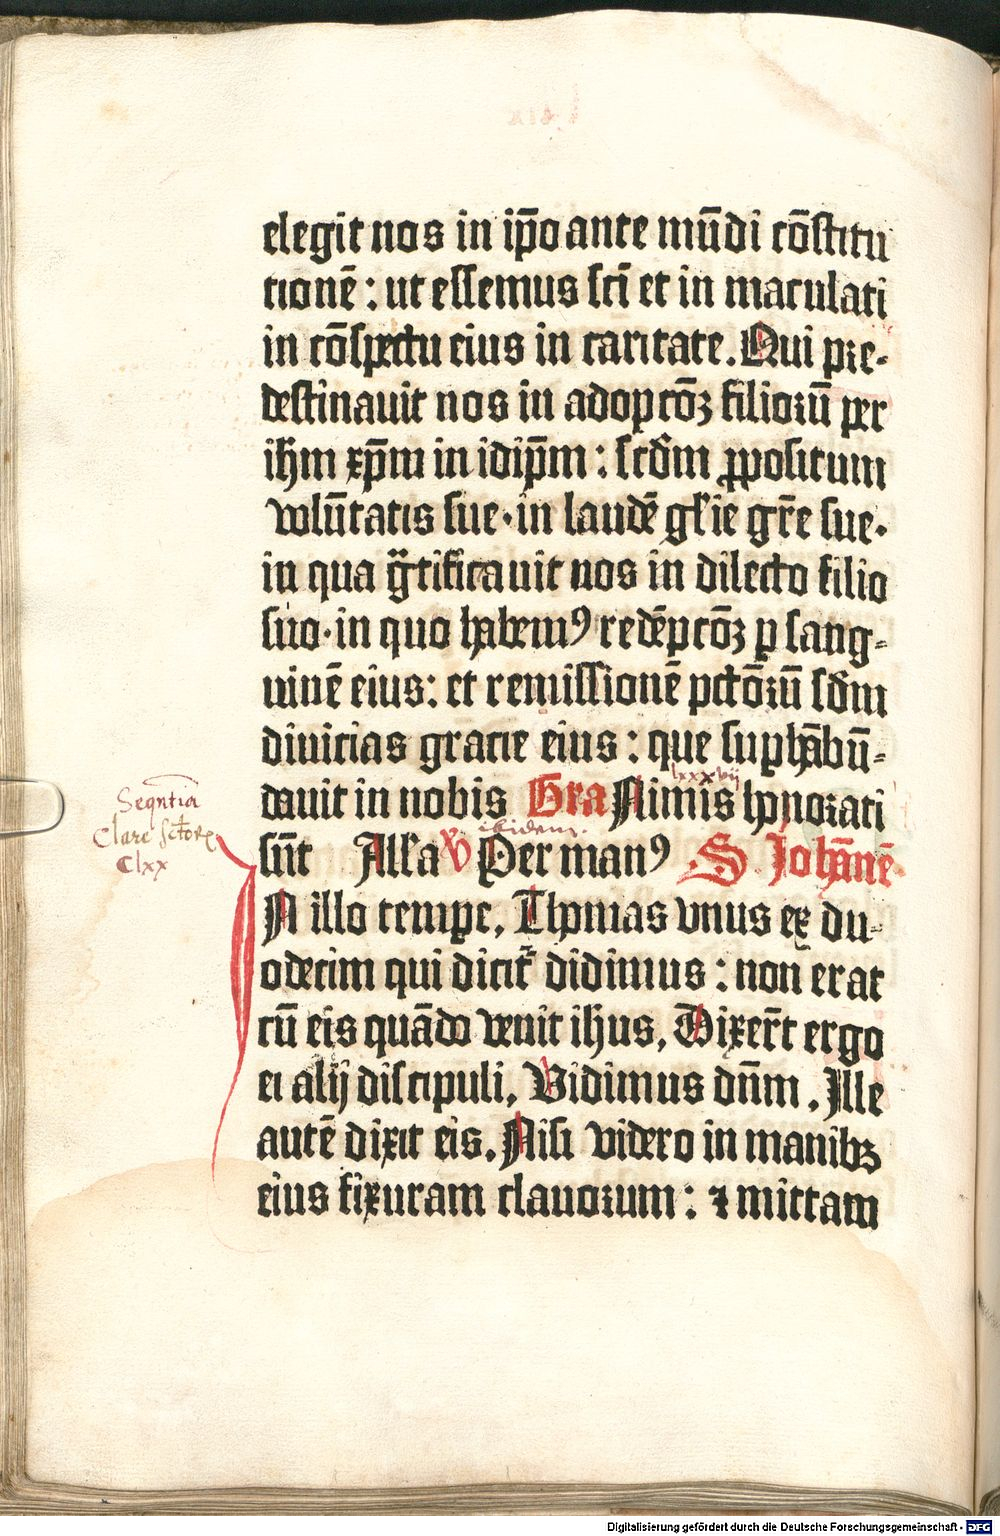 elegit nos in ip̄o ante mūdi cōstitu
tionē : ut essemus sc̄i et in maculati
in cōspectu eius in caritate . Qui pre-
destinauit nos in adopcōꝫ filiorū per
ih̄m xp̄m in idip̄m : scd̄m ꝓpositum
volūtatis sue · in laudē gl̄ie gr̄e sue ·
in qua gͣtificauit nos in dilecto filio
suo · in quo habemꝰ redēpcōꝫ ꝑ sang-
uinē eius : et remissionē pctōrū sd̄m
diuicias gracie eius : que suꝑhābū-
lxxxvij
dauit in nobis Gra Nimis honorati
Seqn̄tia
ibidem .
Clare sctorꝝ
sūt All'a V Per manꝰ S Johānē
Clxx
N illo tempe , Thomas vnus ex du-
odecim qui dicit᷑ didimus : non erat
cū eis quādo venit ihus , Dixer̄t ergo
ei alij discipuli , Vidimus dn̄m . Ille
autē dixit eis . Nisi videro in manibꝫ
eius fixuram clauorum : ⁊ mittam
Digitalisierung gefördert durch die Deutsche Forschungsgemeinschaft - DFG